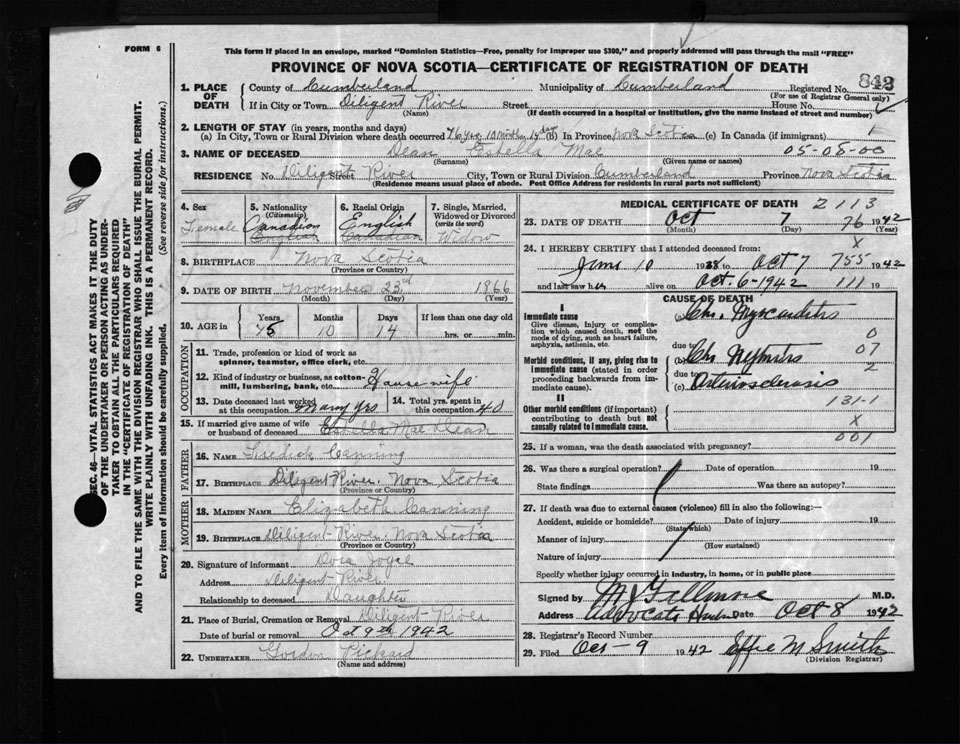 FORM 6
This form if placed in an envelope, marked "Dominion Statistics—Free, penalty for improper use $300," and properly addressed will pass through the mail "FREE"
PROVINCE OF NOVA SCOTIA—CERTIFICATE OF REGISTRATION OF DEATH
843
1. PLACE OF DEATH County of Cumberland Municipality of Cumberland Registered No.
(For use of Registrar General only)
If in City or Town Diligent River Street House No.
(Name) (If death occurred in a hospital or institution, give the name instead of street and number)
2. LENGTH OF STAY (in years, months and days)
(a) In City, Town or Rural Division where death occurred 76 yrs 10 months 14 days (b) In Province Nova Scotia (c) In Canada (if immigrant)
3. NAME OF DECEASED Dean Estella Mae 05-08-00
(Surname) (Given name or names)
RESIDENCE No. Diligent Street River City, Town or Rural Division Cumberland Province Nova Scotia
(Residence means usual place of abode. Post Office Address for residents in rural parts not sufficient)
4. Sex Female
5. Nationality (Citizenship) Canadian English
6. Racial Origin English Canadian
7. Single, Married, Widowed or Divorced (write the word) Widow
8. BIRTHPLACE Nova Scotia
(Province or Country)
9. DATE OF BIRTH November 23rd 1866
(Month) (Day) (Year)
10. AGE in Years Months Days If less than one day old
75 10 14 hrs. or min.
OCCUPATION
11. Trade, profession or kind of work as spinner, teamster, office clerk, etc.
12. Kind of industry or business, as cotton-mill, lumbering, bank, etc. Housewife
13. Date deceased last worked at this occupation many yrs. 14. Total yrs. spent in this occupation 40
15. If married give name of wife or husband of deceased Estella Mae Dean
FATHER
16. Name Canning
17. Birthplace Diligent River. Nova Scotia
(Province or Country)
MOTHER
18. Maiden Name Elizabeth Canning
19. Birthplace Diligent River Nova Scotia
(Province or Country)
20. Signature of informant Dora
Address Diligent River
Relationship to deceased Daughter
21. Place of Burial, Cremation or Removal Diligent River
Date of burial or removal Oct 9th 1942
22. Undertaker Gordon Pickard
(Name and address)
MEDICAL CERTIFICATE OF DEATH Z 113
23. DATE OF DEATH Oct 7 76 1942
(Month) (Day) (Year)
X
24. I HEREBY CERTIFY that I attended deceased from:
10 1938 to Oct 7 755 1942
and last saw her alive on Oct. 6-1942 111 19
CAUSE OF DEATH
I
Immediate cause
Give disease, injury or complication which caused death, not the mode of dying, such as heart failure, asphyxia, asthenia, etc.
(a) Chr. Myocarditis
0
due to
07
Morbid conditions, if any, giving rise to immediate cause (stated in order proceeding backwards from immediate cause).
(b) Chr. Nephritis
2
due to
(c) Arteriosclerosis
131-1
II
Other morbid conditions (if important) contributing to death but not causally related to immediate cause.
X
001
25. If a woman, was the death associated with pregnancy?
26. Was there a surgical operation? Date of operation 19
State findings Was there an autopsy?
27. If death was due to external causes (violence) fill in also the following:—
Accident, suicide or homicide? Date of injury 19
(State which)
Manner of injury
(How sustained)
Nature of injury
Specify whether injury occurred in industry, in home, or in public place
Signed by M.D.
Address Advocate Date Oct 8 1942
28. Registrar's Record Number
29. Filed Oct-9 1942 Effie M Smith
(Division Registrar)
SEC. 46—VITAL STATISTICS ACT MAKES IT THE DUTY
OF THE UNDERTAKER OR PERSON ACTING AS UNDER-
TAKER TO OBTAIN ALL THE PARTICULARS REQUIRED
IN THE "CERTIFICATE OF REGISTRATION OF DEATH"
AND TO FILE THE SAME WITH THE DIVISION REGISTRAR WHO SHALL ISSUE THE BURIAL PERMIT.
WRITE PLAINLY WITH UNFADING INK. THIS IS A PERMANENT RECORD.
Every item of information should be carefully supplied. (See reverse side for instructions.)